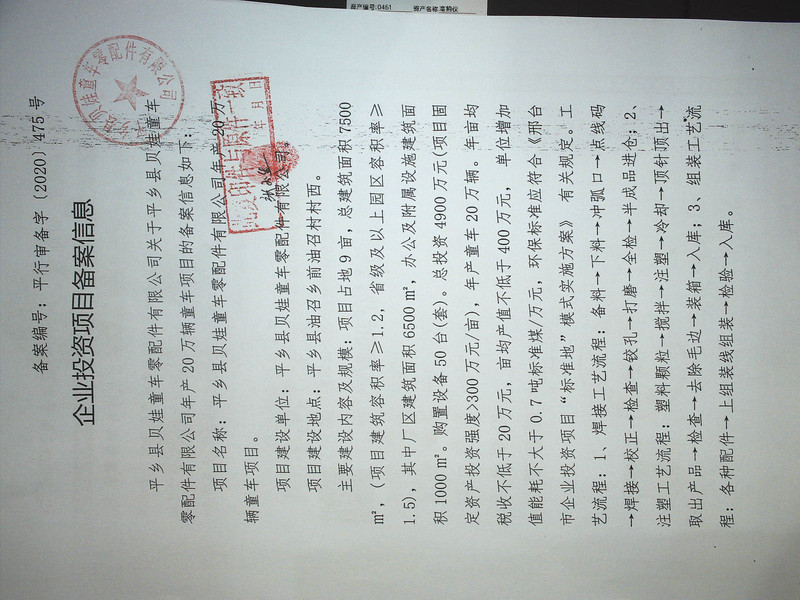 资产编号:0461 资产名称:高拍仪
备案编号：平行审备字〔2020〕475号
企业投资项目备案信息
平乡县贝娃童车零配件有限公司关于平乡县贝娃童车
零配件有限公司年产20万辆童车项目的备案信息如下：
项目名称：平乡县贝娃童车零配件有限公司年产20万
辆童车项目。
项目建设单位：平乡县贝娃童车零配件有限公司。
项目建设地点：平乡县油召乡前油召村村西。
主要建设内容及规模：项目占地9亩，总建筑面积7500
m²，（项目建筑容积率≥1.2，省级及以上园区容积率≥
1.5），其中厂区建筑面积6500m²，办公及附属设施建筑面
积1000m²。购置设备50台(套)。总投资4900万元(项目固
定资产投资强度>300万元/亩)，年产童车20万辆。年亩均
税收不低于20万元，亩均产值不低于400万元，单位增加
值能耗不大于0.7吨标准煤/万元，环保标准应符合《邢台
市企业投资项目“标准地”模式实施方案》有关规定。工
艺流程：1、焊接工艺流程：备料→下料→冲弧口→点线码
→焊接→校正→检查→铰孔→打磨→全检→半成品进仓；2、
注塑工艺流程：塑料颗粒→搅拌→注塑→冷却→顶针顶出→
取出产品→检查→去除毛边→装箱→入库；3、组装工艺流
程：各种配件→上组装线组装→检验→入库。
平乡县贝娃童车零配件有限公司
此复印件与原件一致
年 月 日